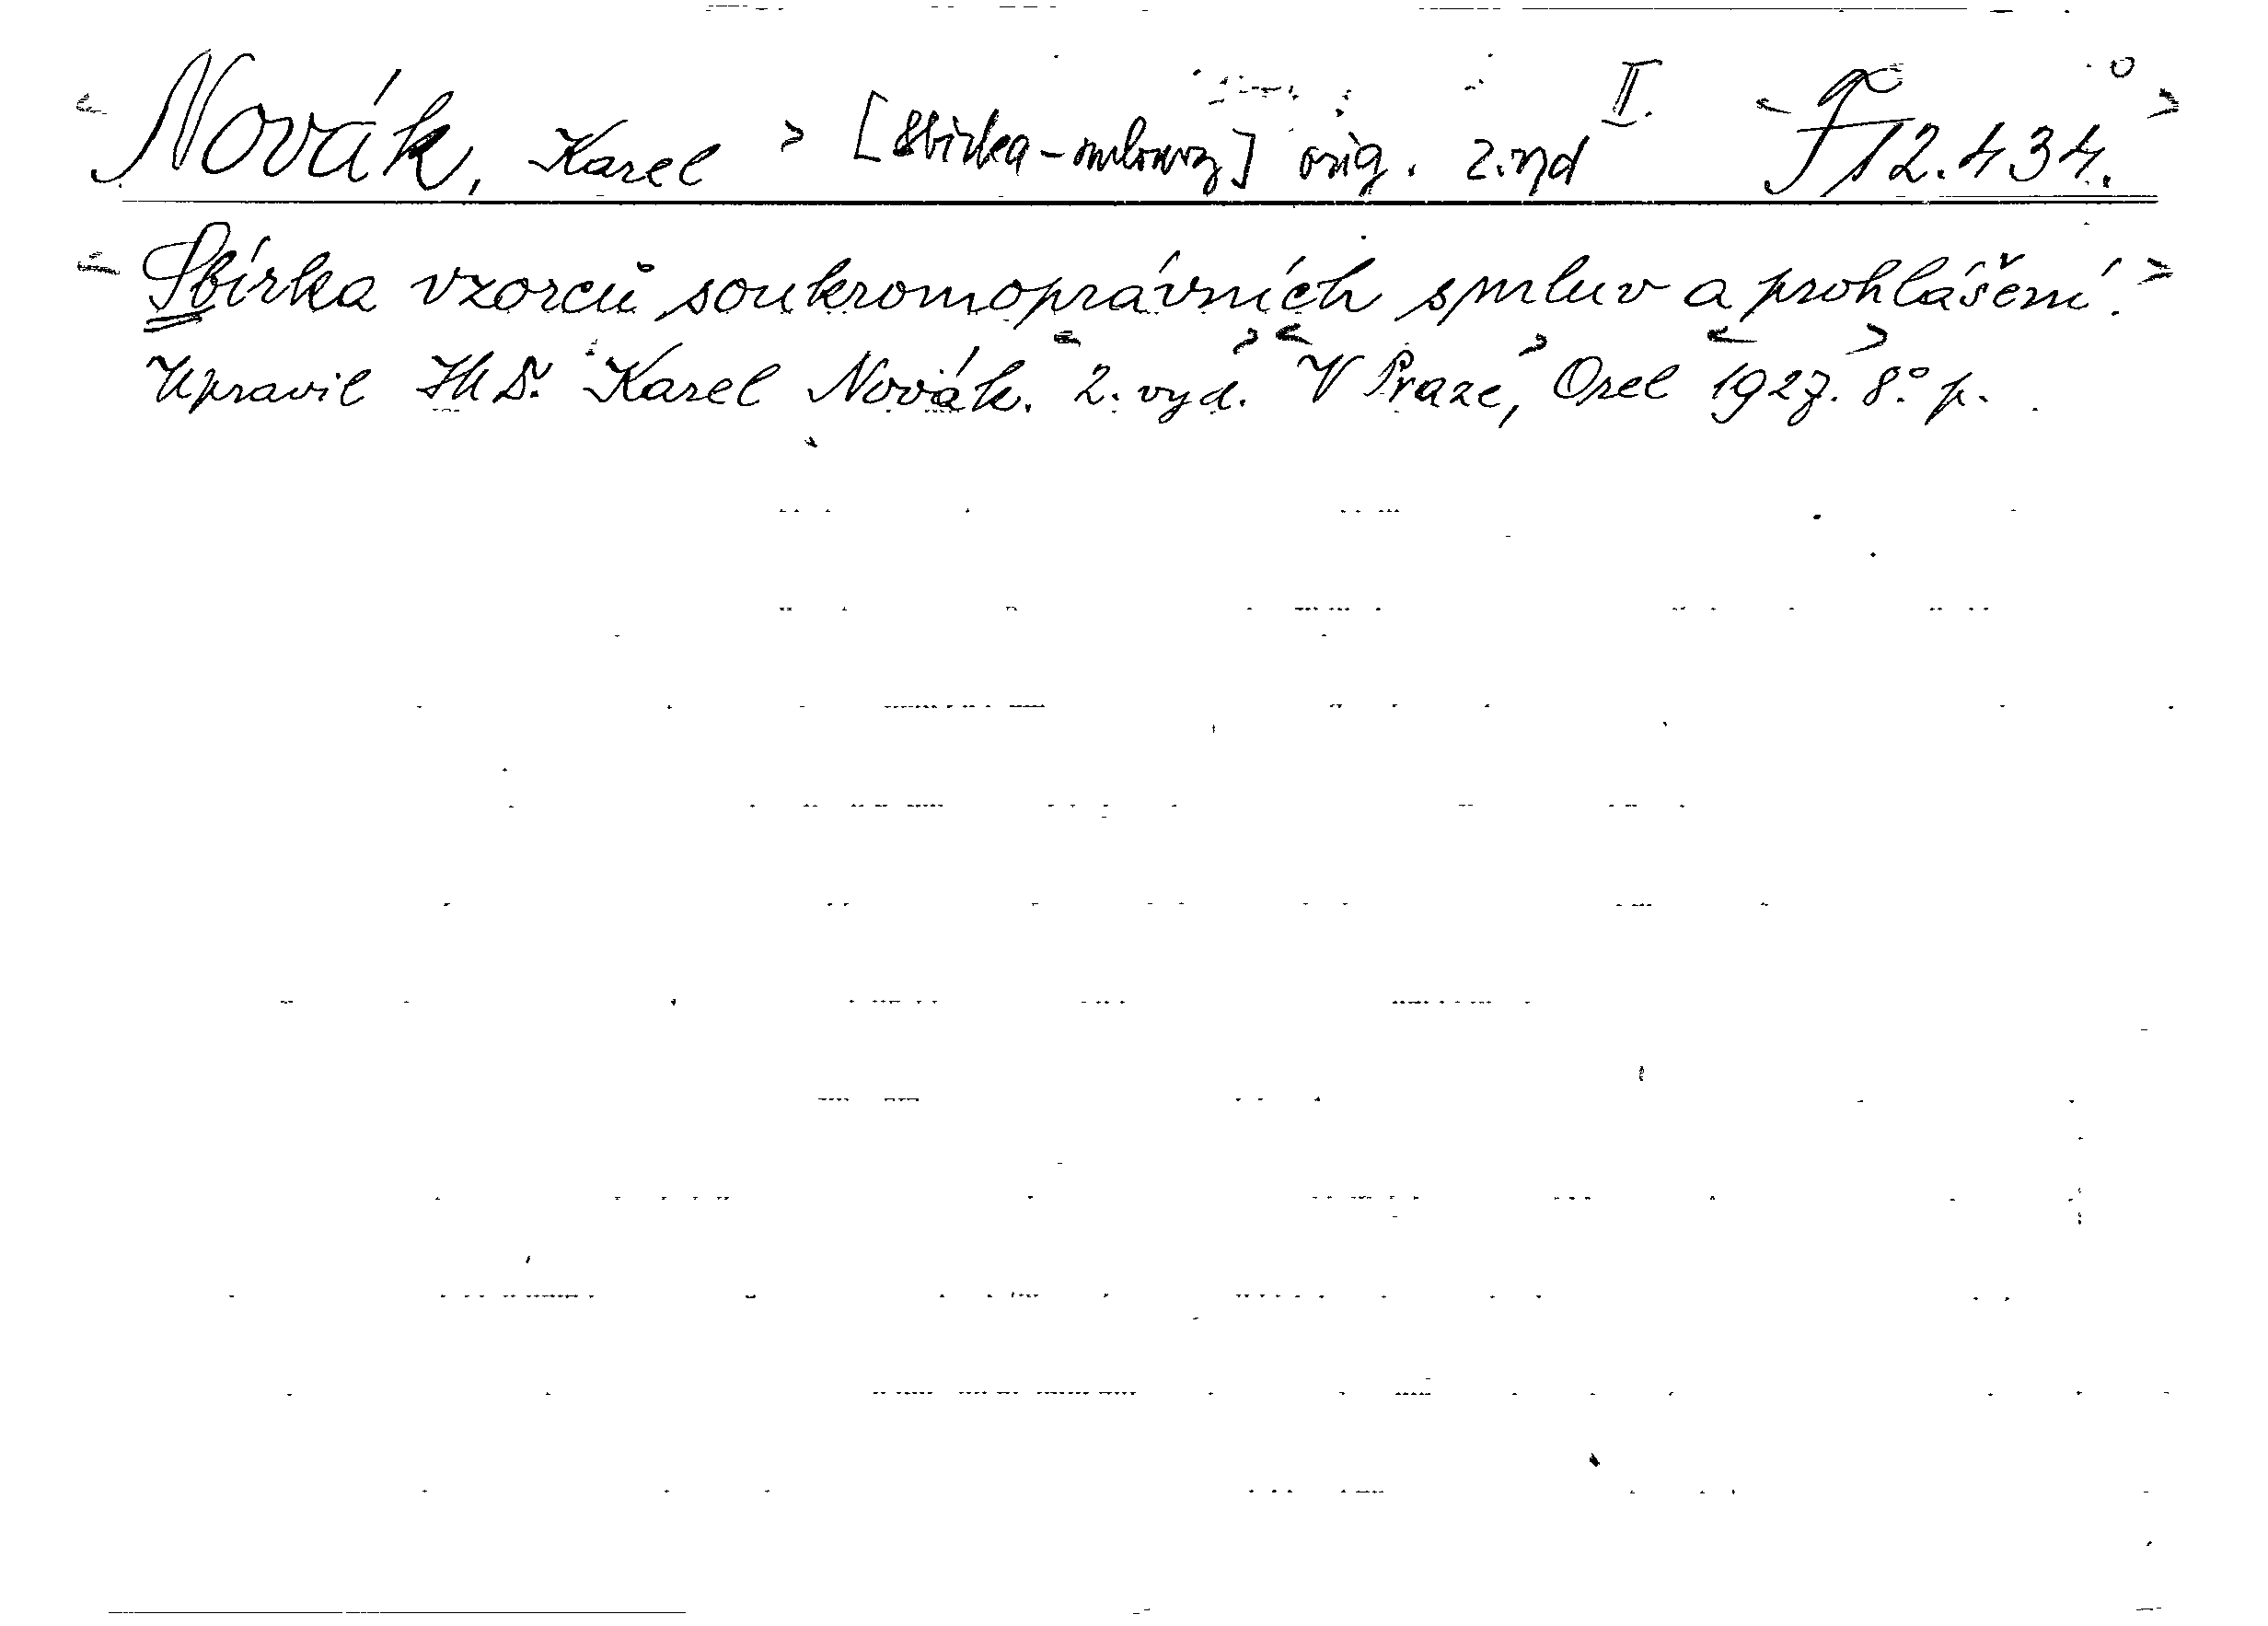 Novák, Karel [Sbírka-smlouvy] orig. 2.vyd II. F 12.434.
Sbírka vzorců soukromoprávních smluv a prohlášení.
Upravil Karel Novák. 2. vyd. V Praze, Orel 1927. 8° p.